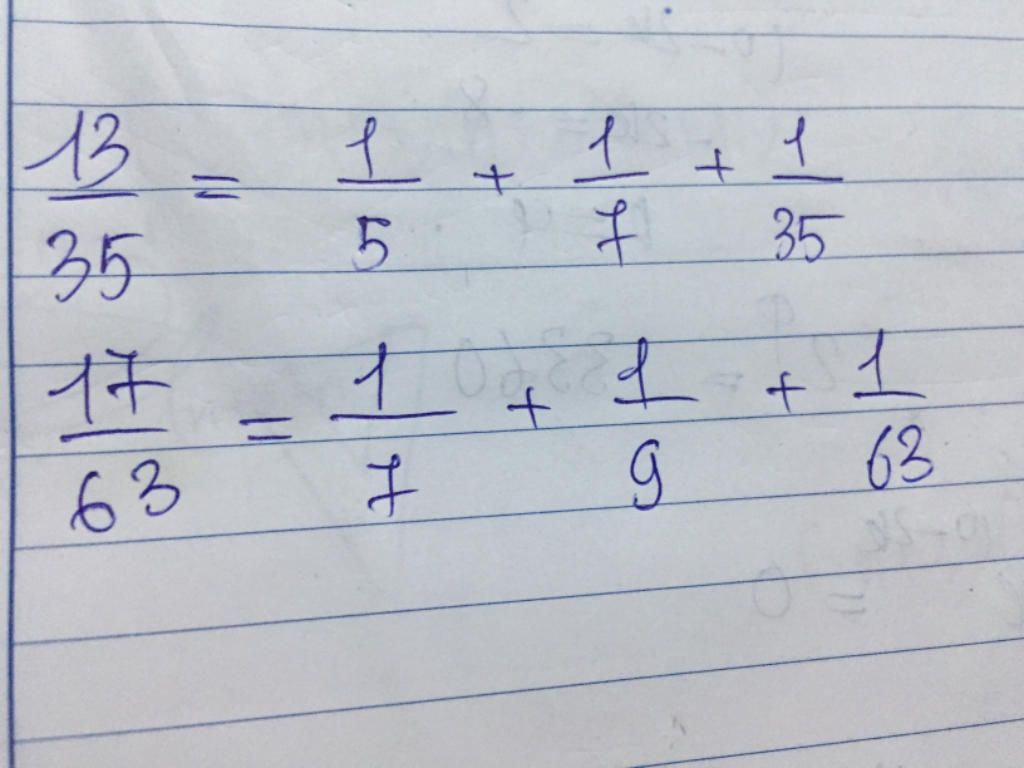 13/35 = 1/5 + 1/7 + 1/35
17/63 = 1/7 + 1/9 + 1/63